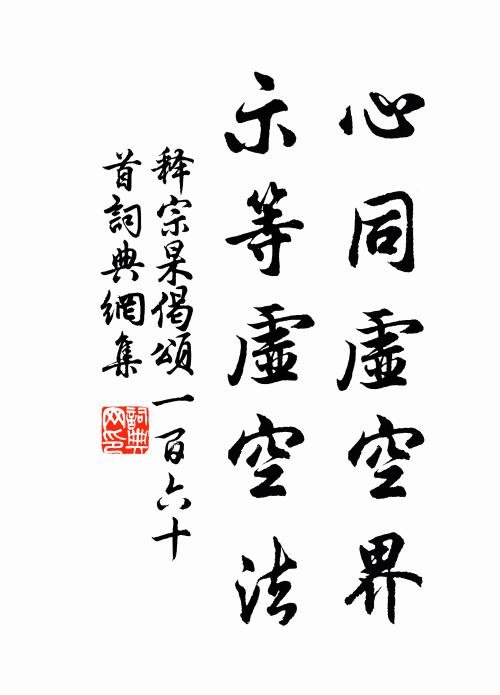 心同虛空界
示等虛空法
释宗杲偈頌一百六十
首詞典網集
詞典
网印